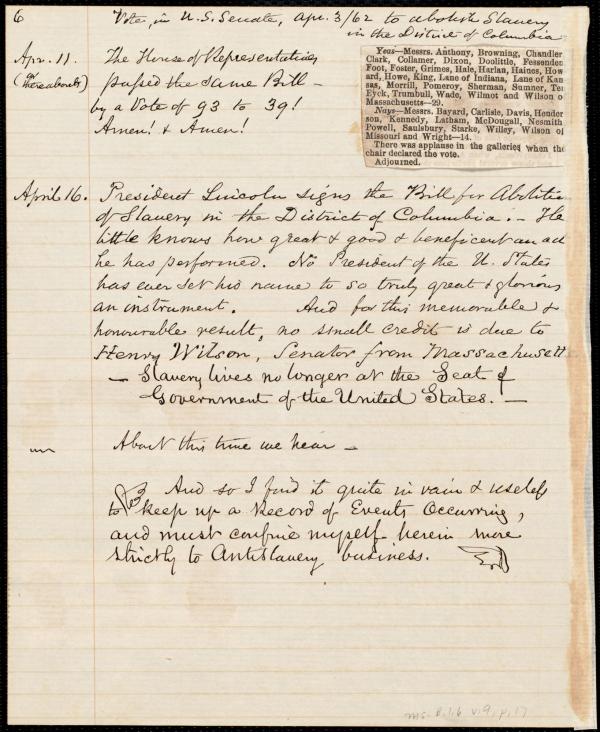 6
Vote, in U.S. Senate, Apr. 3/62 to abolish Slavery
in the District of Columbia
Yeas—Messrs. Anthony, Browning, Chandler
Clark, Collamer, Dixon, Doolittle, Fessenden
Foot, Foster, Grimes, Hale, Harlan, Haines, How
ard, Howe, King, Lane of Indiana, Lane of Kan
sas, Morrill, Pomeroy, Sherman, Sumner, Ten
Eyck, Trumbull, Wade, Wilmot and Wilson o
Massachusetts—29.
Nays—Messrs. Bayard, Carlisle, Davis, Hender
son, Kennedy, Latham, McDougall, Nesmith
Powell, Saulsbury, Starke, Willey, Wilson of
Missouri and Wright—14.
There was applause in the galleries when the
chair declared the vote.
Adjourned.
Apr. 11.
(or thereabouts)
The House of Representatives
passed the same Bill —
by a Vote of 93 to 39!
Amen! & Amen!
April 16.
President Lincoln signs the Bill for Abolition
of Slavery in the District of Columbia. — He
little knows how great & good & beneficent an act
he has performed. No President of the U. States
has ever set his name to so truly great & glorious
an instrument. And for this memorable &
honourable result, no small credit is due to
Henry Wilson, Senator from Massachusett
— Slavery lives no longer at the Seat of
Government of the United States. —
About this time we hear —
And so I find it quite in vain & useless
to keep up a Record of Events Occurring,
and must confine myself herein more
strictly to Antislavery business.
ms. B.1.6 v.9, p.17